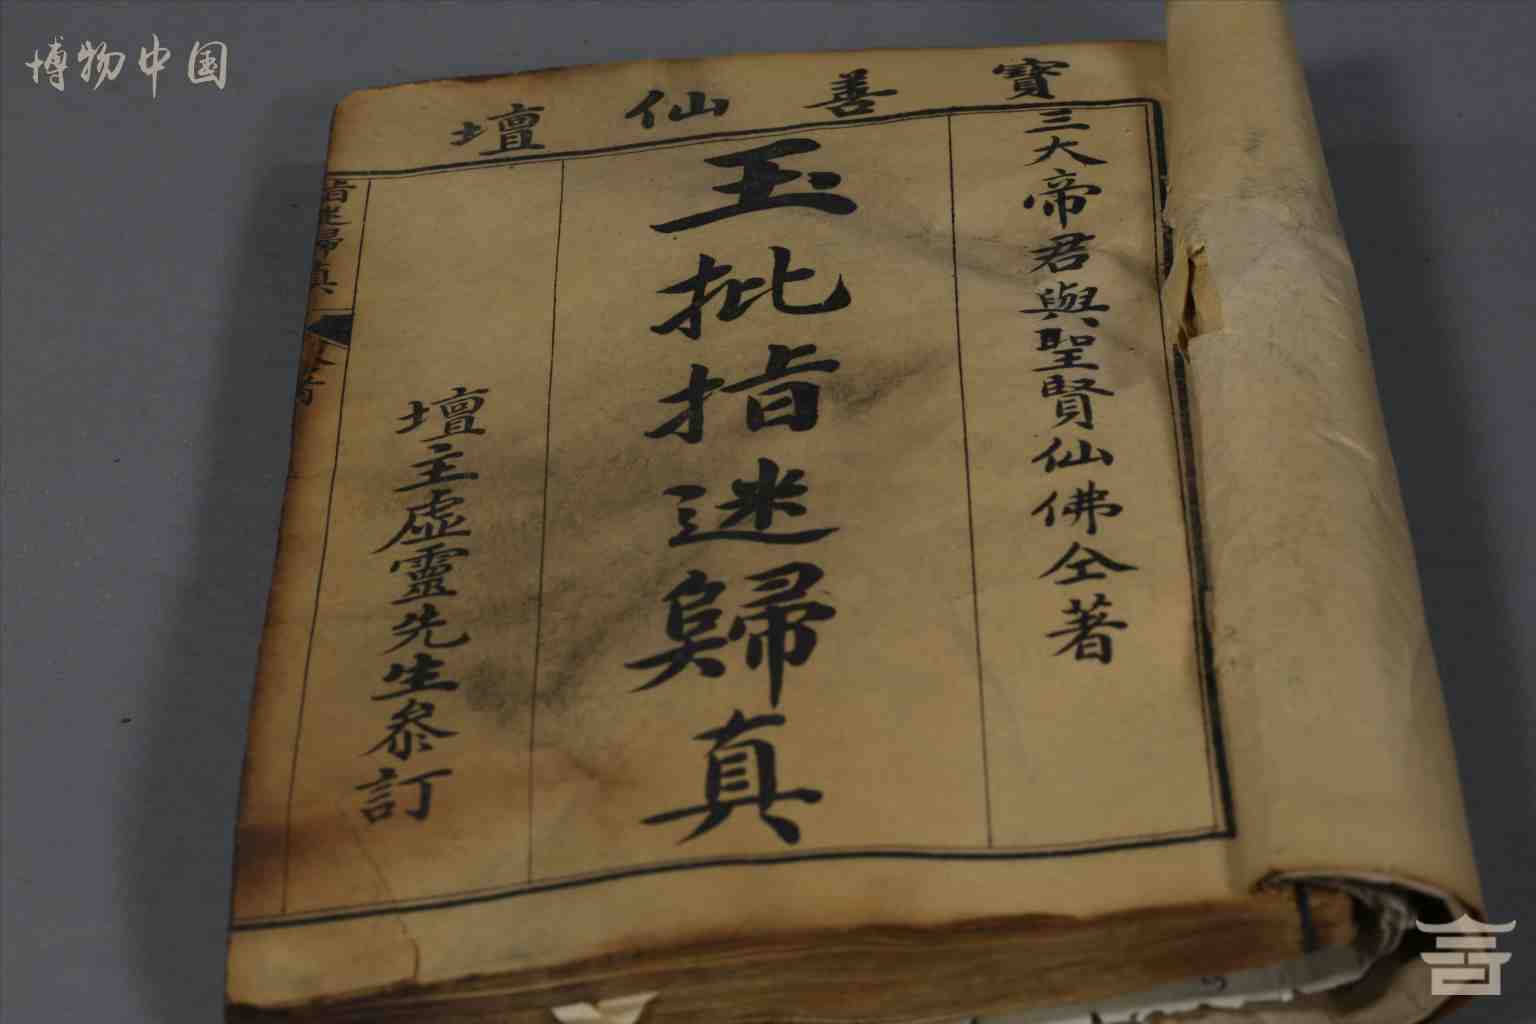 博物中国
寶善仙壇
三大帝君與聖賢仙佛仝著
玉批指迷歸真
壇主虛靈先生參訂
指迷歸真